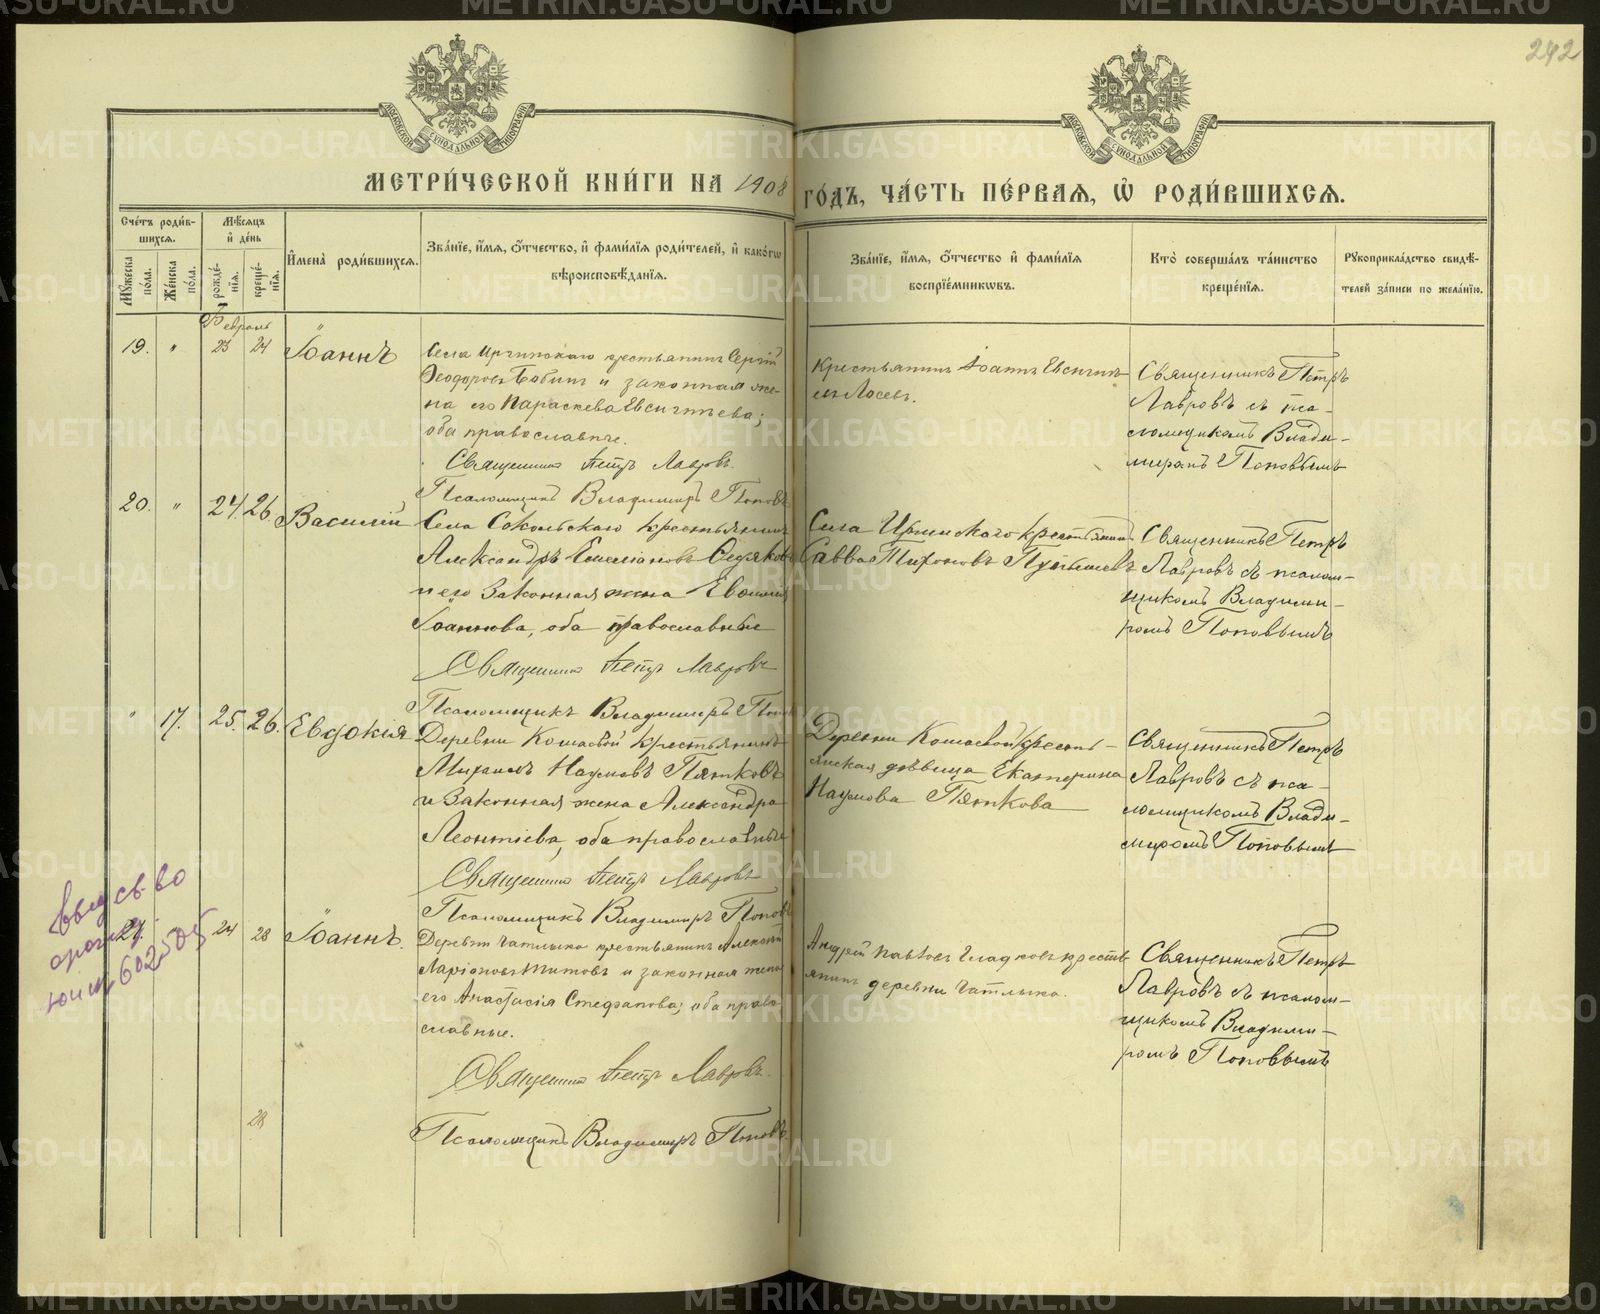 242
МОСКОВСКОЙ СѴНОДАЛЬНОЙ ТИПОГРАФІИ
МОСКОВСКОЙ СѴНОДАЛЬНОЙ ТИПОГРАФІИ
МЕТРИ́ЧЕСКОЙ КНИ́ГИ НА 1908 ГО́ДЪ, ЧА́СТЬ ПЕ́РВАЯ, Ѡ҆ РОДИ́ВШИХСЯ.
Сче́тъ роди́в-
шихся.
Мꙋжеска по́ла.
Же́нска по́ла.
Мѣ́сяцъ
и҆ де́нь
рожде́-
нїя.
креще́-
нїя.
И҆мена̀ роди́вшихся.
Зва́нїе, и҆́мя, ѻ҆́тчество, и҆ фами́лїя роди́телей, и҆ како́гѡ
вѣроисповѣ́данїя.
Зва́нїе, и҆́мя, ѻ҆́тчество и҆ фами́лїя
воспрїе́мникѡвъ.
Кто̀ соверша́лъ та́инство
креще́нїя.
Рꙋкоприкла́дство свидѣ́-
телей за́писи по жела́нїю.
Февраль
19. " 23 24 Іоаннъ
Села Иргинскаго крестьянинъ Сергій
Ѳеодоровъ Бабинъ и законная же-
на его Параскева Евсигніева;
оба православные.
Священникъ Петръ Лавровъ.
Псаломщикъ Владимиръ Поповъ
Крестьянинъ Іоаннъ Евсигніе-
въ Лосевъ.
Священникъ Петръ
Лавровъ съ пса-
ломщикомъ Влади-
миромъ Поповымъ
20. " 24. 26. Василій
Села Сокольскаго крестьянинъ
Александръ
и его законная жена Евѳимія
Іоаннова, оба православные
Священникъ Петръ Лавровъ
Псаломщикъ Владимиръ Поповъ
Села Иргинскаго крестьянинъ
Савва
Священникъ Петръ
Лавровъ съ псалом-
щикомъ Владими-
ромъ Поповымъ
" 17. 25. 26. Евдокія
Деревни Кошаевой крестьянинъ
Михаилъ Наумовъ Пятковъ
и законная жена Александра
Леонтіева, оба православные
Священникъ Петръ Лавровъ
Псаломщикъ Владимиръ Поповъ
Деревни Кошаевой кресть-
янская дѣвица Екатерина
Наумова Пяткова
Священникъ Петръ
Лавровъ съ пса-
ломщикомъ Влади-
миромъ Поповымъ
21. " 24 28 Іоаннъ.
Деревни Чатлыка крестьянинъ Алексѣй
Ларіоновъ Титовъ и законная жена
его Анастасія Стефанова; оба право-
славные.
Священникъ Петръ Лавровъ.
Псаломщикъ Владимиръ Поповъ.
Андрей Павловъ Гладковъ крестьь
янинъ деревни Чатлыка.
Священникъ Петръ
Лавровъ съ псалом-
щикомъ Владими-
ромъ Поповымъ
28
602505
METRIKI.GASO-URAL.RU